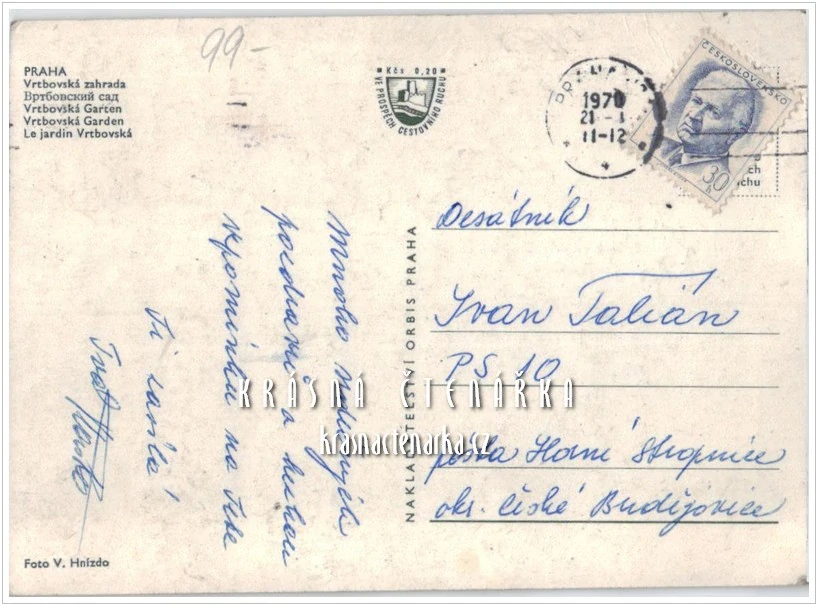 99-
PRAHA
Vrtbovská zahrada
Вртбовский сад
Vrtbovská Garten
Vrtbovská Garden
Le jardin Vrtbovská
Kčs 0,20
VE PROSPĚCH CESTOVNÍHO RUCHU
PRAHA
1970
21
11-12
ČESKOSLOVENSKO
30 h
ch
uchu
Mnoho
pozdravů a
vzpomínku na Tebe
Ti
Foto V. Hnízdo
NAKLADATELSTVÍ ORBIS PRAHA
Desátník
Ivan Talián
PS 10
pošta Horní Stropnice
okr. České Budějovice
KRÁSNÁ ČTENÁŘKA
krasnactenarka.cz